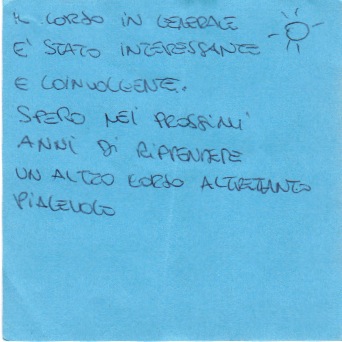 IL CORSO IN GENERALE
E' STATO INTERESSANTE
E COINVOLGENTE.
SPERO NEI PROSSIMI
ANNI DI RIPRENDERE
UN ALTRO CORSO ALTRETTANTO
PIACEVOLE